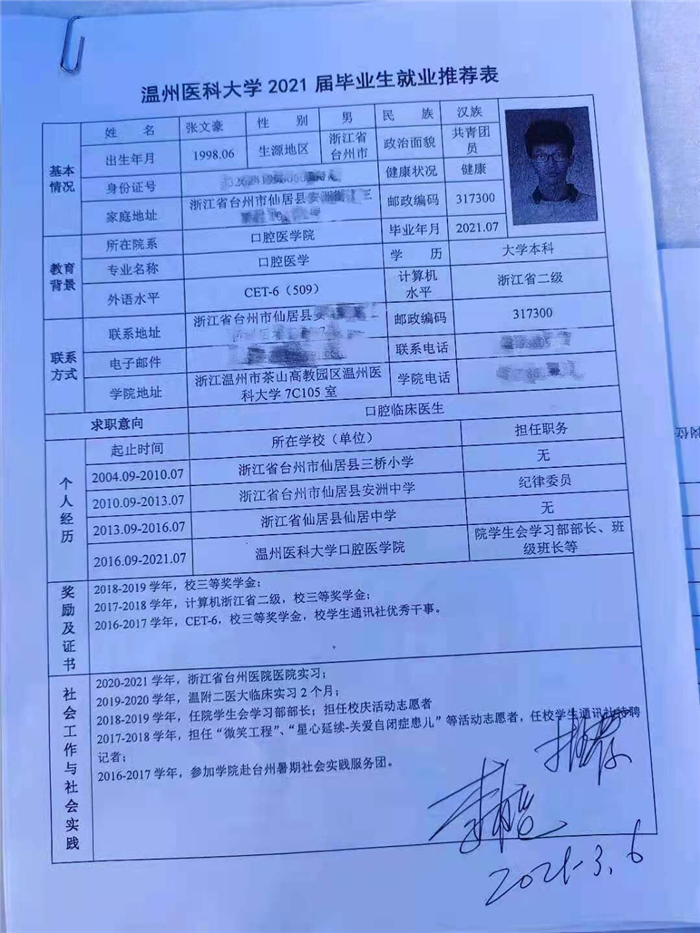 温州医科大学 2021 届毕业生就业推荐表
基本情况
姓 名 张文豪 性 别 男 民 族 汉族
出生年月 1998.06 生源地区 浙江省台州市 政治面貌 共青团员
身份证号 健康状况 健康
家庭地址 浙江省台州市仙居县安洲街 三 邮政编码 317300
教育背景
所在院系 口腔医学院 毕业年月 2021.07
专业名称 口腔医学 学 历 大学本科
外语水平 CET-6（509） 计算机水平 浙江省二级
联系方式
联系地址 浙江省台州市仙居县 邮政编码 317300
电子邮件 联系电话
学院地址 浙江温州市茶山高教园区温州医科大学 7C105 室 学院电话
求职意向 口腔临床医生
个人经历
起止时间 所在学校（单位） 担任职务
2004.09-2010.07 浙江省台州市仙居县三桥小学 无
2010.09-2013.07 浙江省台州市仙居县安洲中学 纪律委员
2013.09-2016.07 浙江省仙居县仙居中学 无
2016.09-2021.07 温州医科大学口腔医学院 院学生会学习部部长、班级班长等
奖励及证书
2018-2019 学年，校三等奖学金；
2017-2018 学年，计算机浙江省二级，校三等奖学金；
2016-2017 学年，CET-6，校三等奖学金，校学生通讯社优秀干事。
社会工作与社会实践
2020-2021 学年，浙江省台州医院医院实习；
2019-2020 学年，温附二医大临床实习 2 个月；
2018-2019 学年，任院学生会学习部部长；担任校庆活动志愿者
2017-2018 学年，担任“微笑工程”、“星心延续-关爱自闭症患儿”等活动志愿者，任校学生通讯社特聘
记者；
2016-2017 学年，参加学院赴台州暑期社会实践服务团。
推荐
2021.3.6
岗位